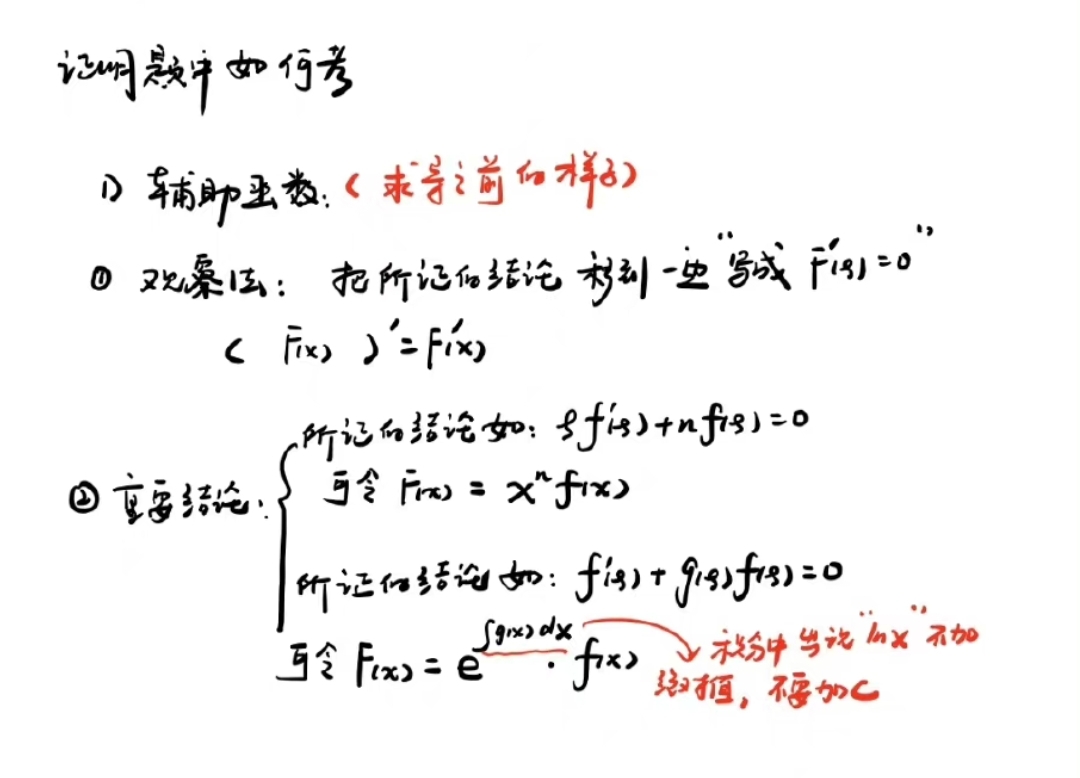 证明题中如何考
1) 辅助函数:(求导之前的样子)
① 观察法: 把所证的结论移到一边"写成 F'(ξ)=0"
( F(x) )'=F'(x)
所证的结论如: ξf'(ξ)+nf(ξ)=0
② 重要结论: 可令 F(x) = xⁿf(x)
所证的结论如: f'(ξ)+g(ξ)f(ξ)=0
可令 F(x) = e^{∫g(x)dx}·f(x) 积分中当说"ln x"不加
绝对值, 不要加C